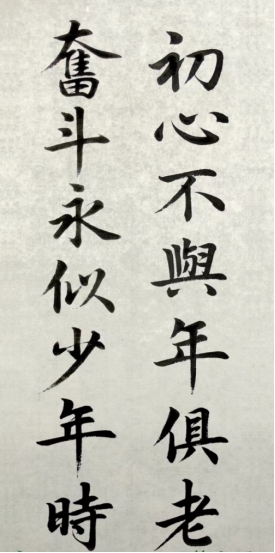 初心不與年俱老
奮斗永似少年時